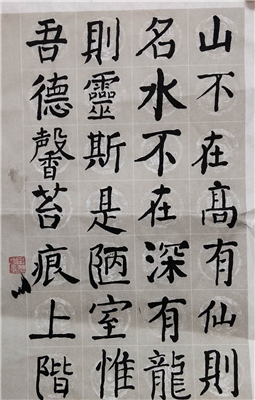 山不在髙有仙則
名水不在深有龍
則靈斯是陋室惟
吾德馨苔痕上階